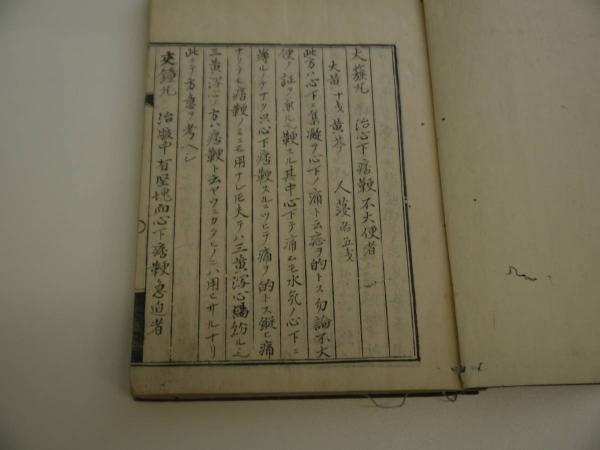 大簇丸　治心下痞鞕不大便者
大黄十戔 黄芩 人参各五戔
此方ハ心下ニ集凝ヲ心下ノ痛ト云忘ヲ的トス勿論不大
便ノ証ヲ鞕スル其中心下テ痛ムモ水気ノ心下ニ
ナク只心下痞鞕スルニツヒテ痛ヲ的トス縦ヒ痛
ナリテモ痞鞕ノミニモ用ナレ𪜈夫テハ三黄瀉心湯
三黄瀉心ノ方ハ痞鞕ト云ヤウニカタヒノニハ用ヒサルナリ
此ニテ方意ヲ考ヘシ
夾鐘丸　治腹中有堅塊而心下痞鞕急迫者